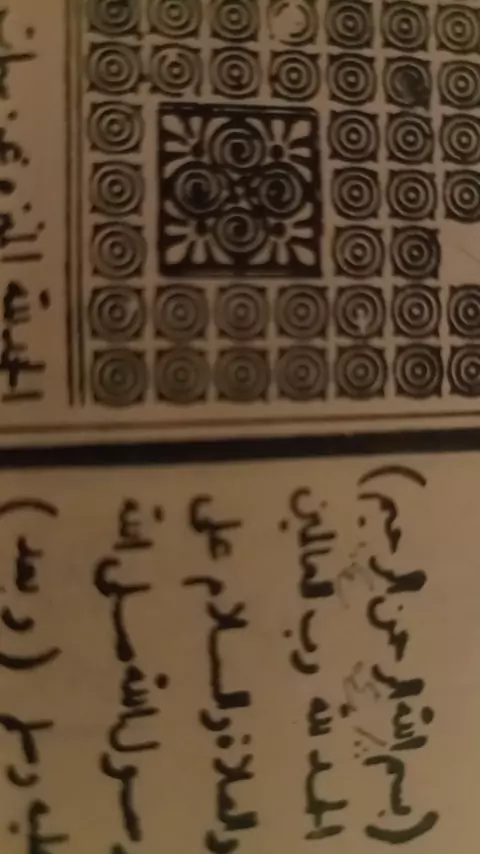 (بسم الله الرحمن الرحيم)
الحمد لله رب العالمين
والصلاة والسلام على
رسول الله صلى الله
عليه وسلم (وبعد)
الحمد لله الذي